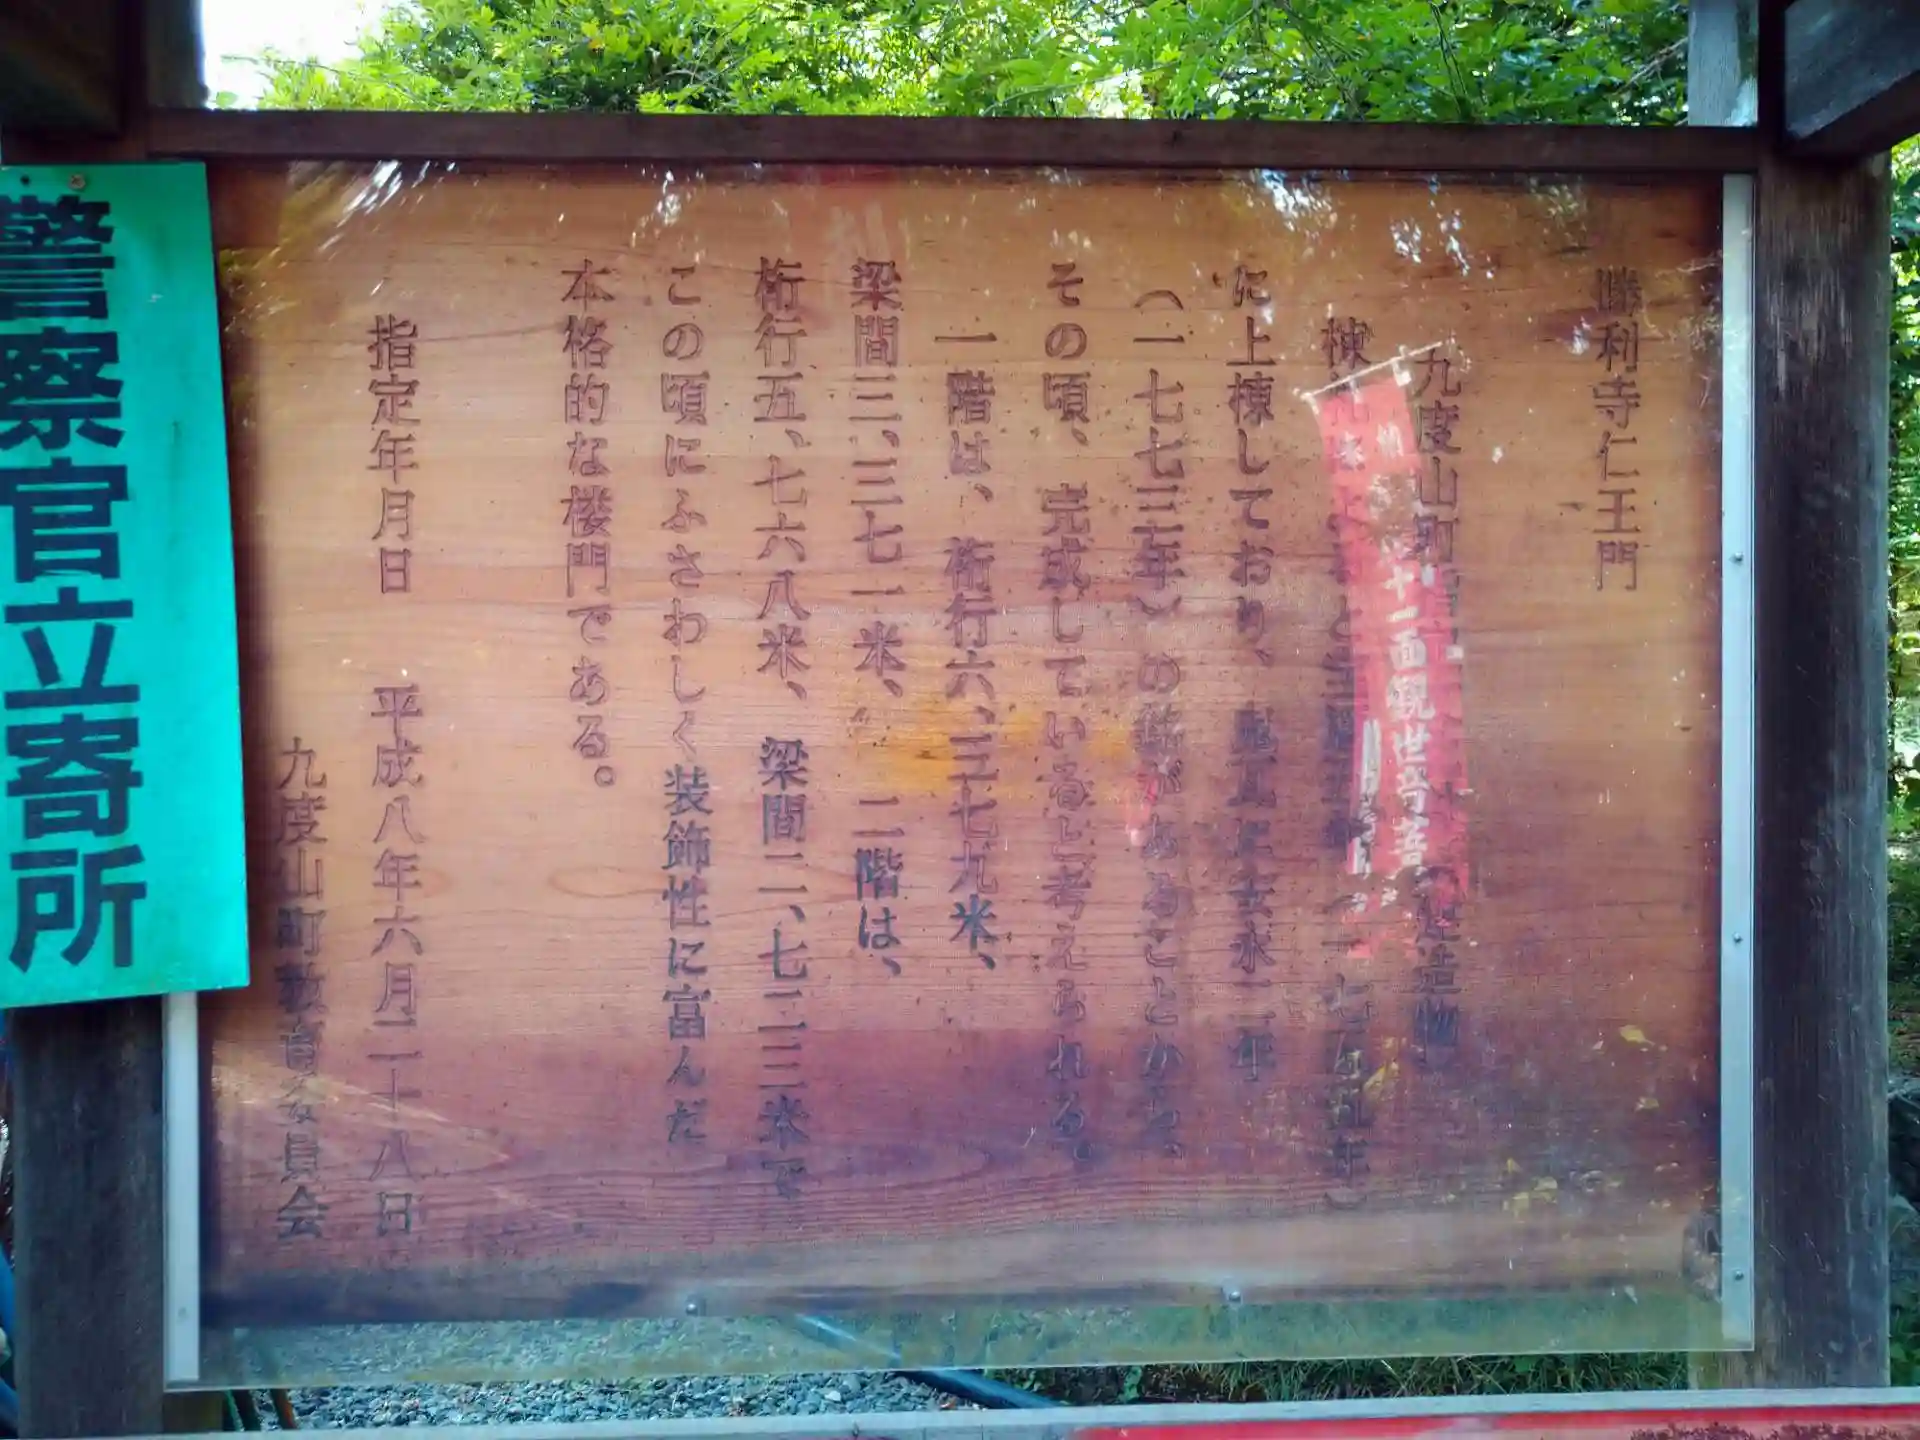 勝利寺仁王門
九度山町 建造物
棟札によると宝暦五年（一七五五年）
に上棟しており、鬼瓦に安永二年
（一七七三年）の銘があることから、
その頃、完成していると考えられる。
一階は、桁行六、三七九米、
梁間三、三七一米、二階は、
桁行五、七六八米、梁間二、七二三米で
この頃にふさわしく装飾性に富んだ
本格的な楼門である。
指定年月日 平成八年六月二十八日
九度山町教育委員会
十一面観世音菩
警察官立寄所